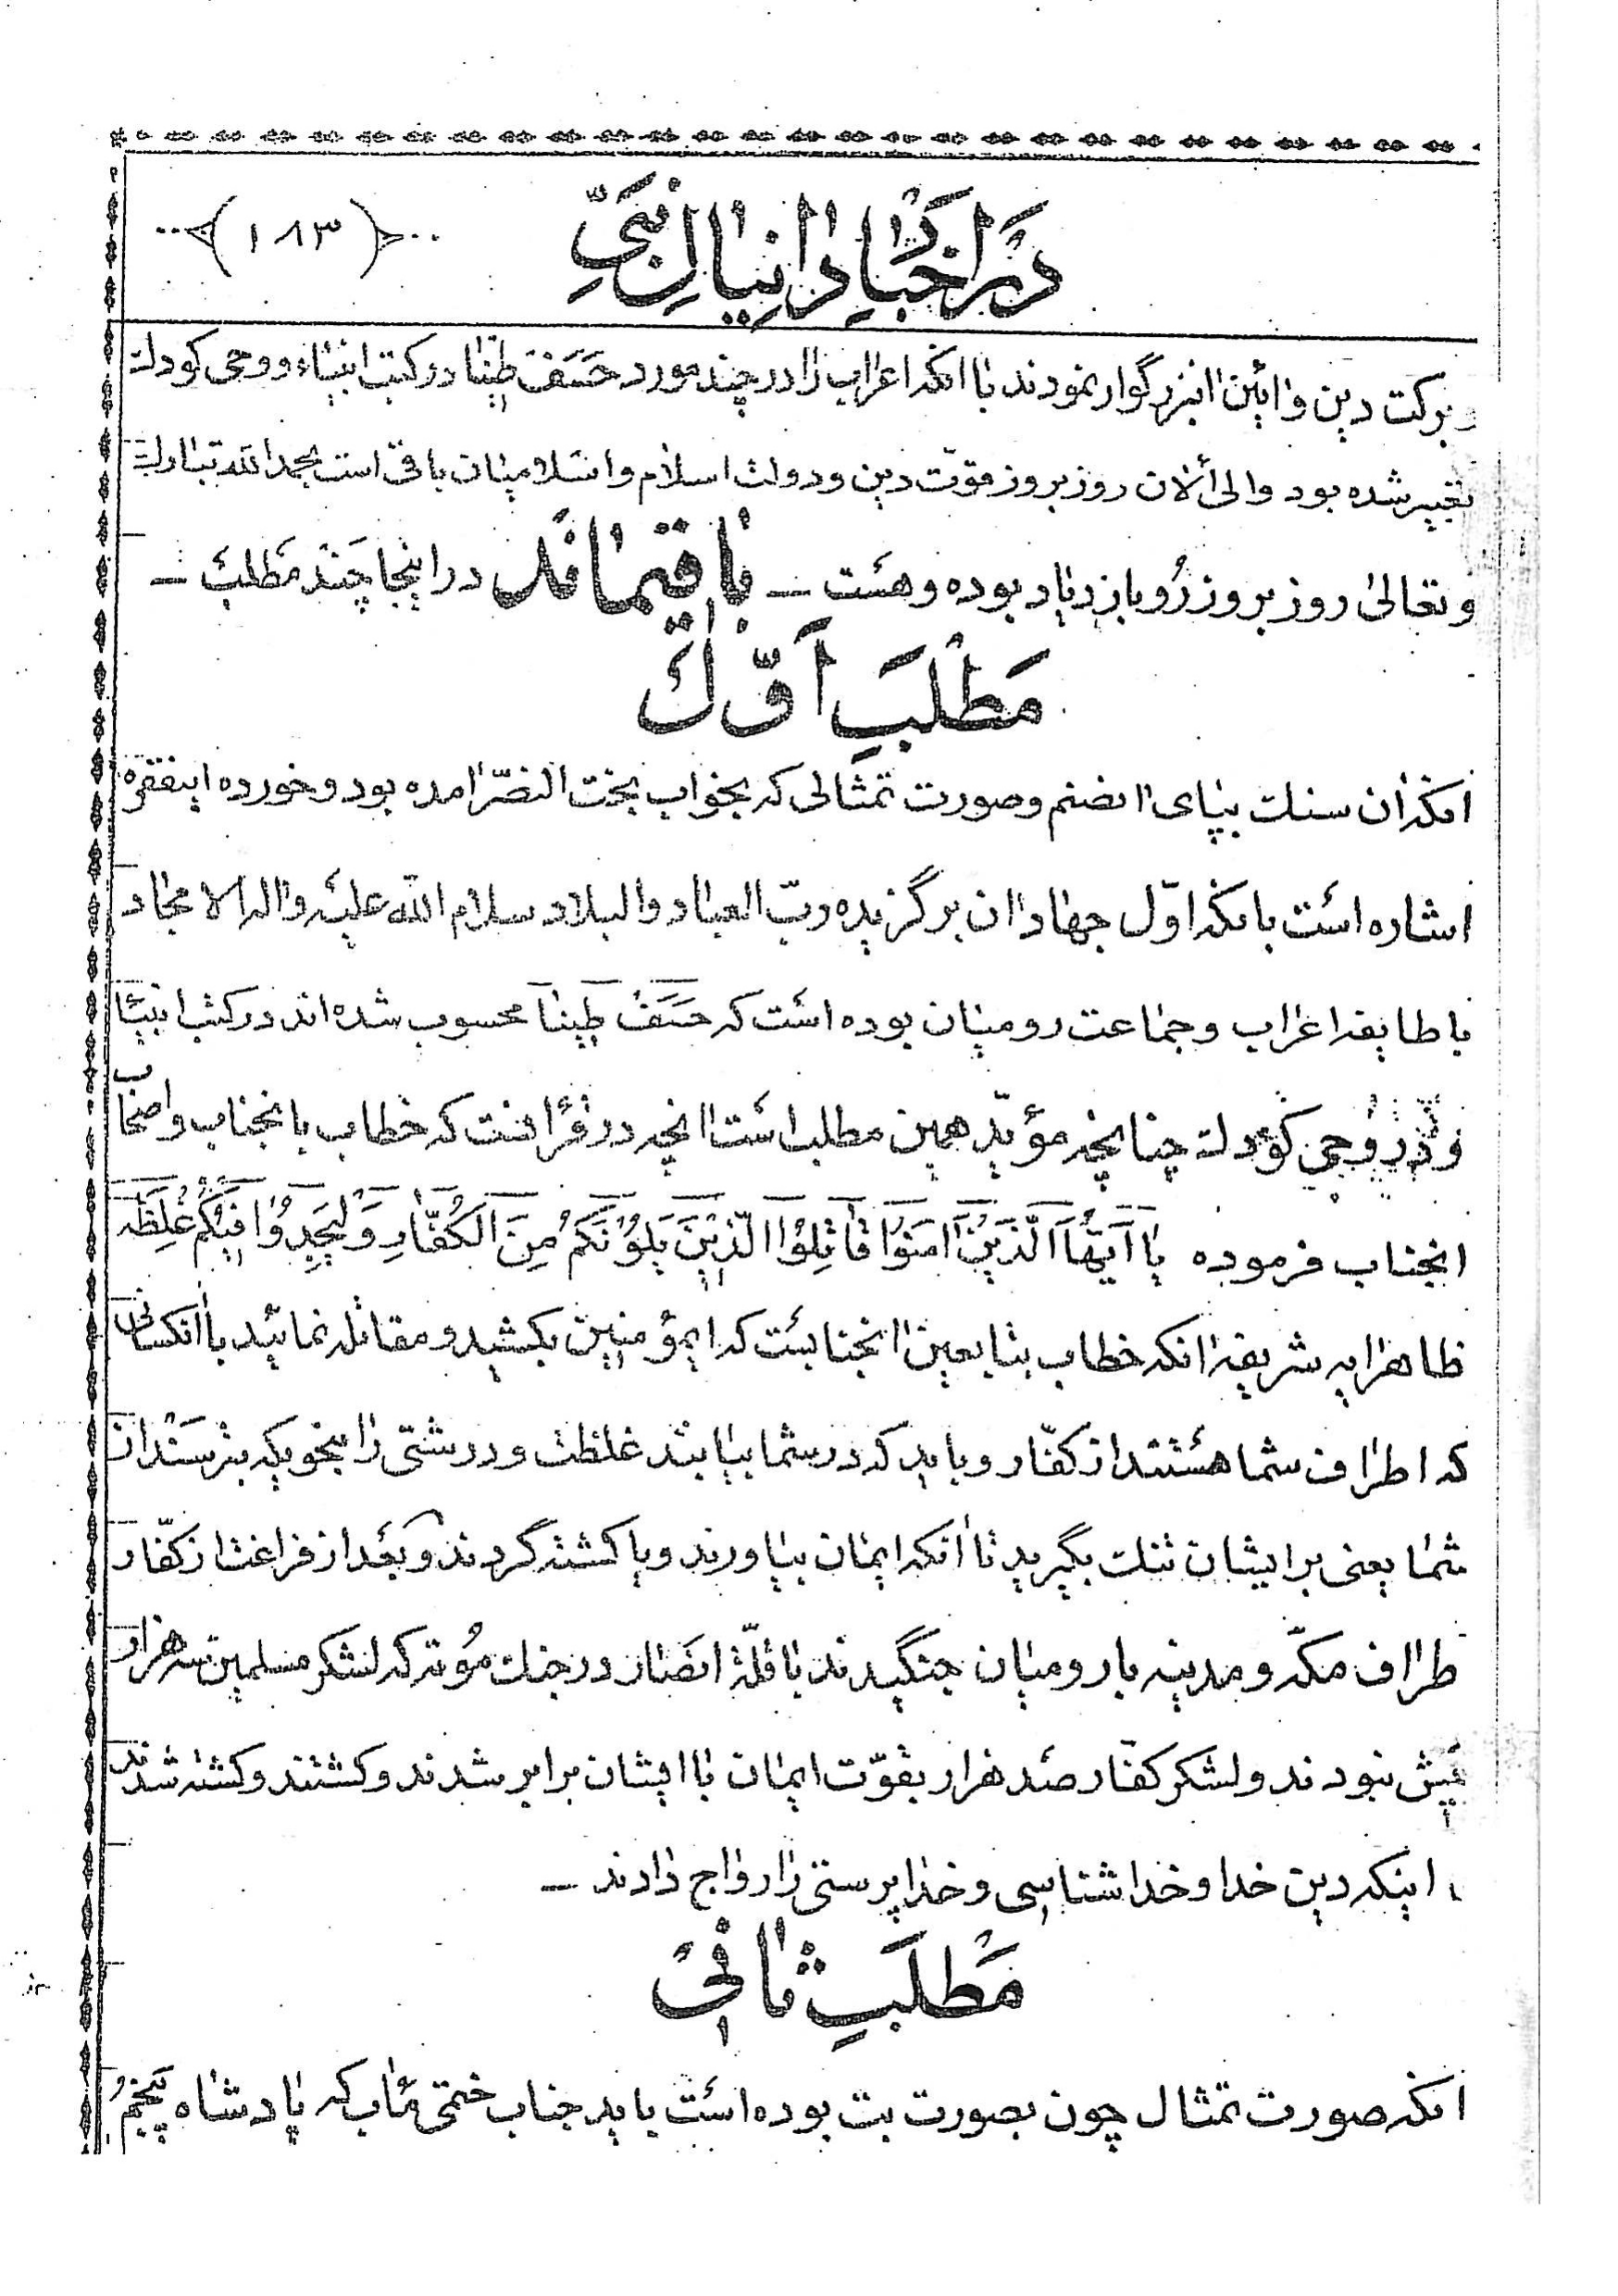 در اخبار دانیال نبی
(۱۸۳)
و برکت دین و ائین انبزرگوار نمودند با انکه اعراب را در چند مورد حسف طینا در کتب انبیاء و وحی کودك
تعبیر شده بود والی الان روز بروز قوت دین و دولت اسلام و اسلامیان باقی است بحمد الله تبارك
و تعالی روز بروز رو بازدیاد بوده و هست ـ باقیماند در اینجا چند مطلب ـ
مطلب اول
انکه ان سنك بپای انصنم و صورت تمثالی که بخواب بخت النصر امده بود و خورده اینفقره
اشاره است بانکه اول جهاد ان برگزیده رب العباد والبلاد سلام الله علیه واله الامجاد
با طایفه اعراب و جماعت رومیان بوده است که حسف طینا محسوب شده اند در کتب انبیا
و در وحی کودك چنانچه مؤید همین مطلب است انچه در قرانست که خطاب بانجناب و اصحاب
انجناب فرموده یا اَیُّهَا الَّذینَ امَنُوا قاتِلُوا الَّذینَ یَلُونَکُم مِنَ الکُفّارِ وَلیَجِدُوا فیکُم غِلظَه
ظاهر ایه شریفه انکه خطاب بتابعین انجنابست که ایمؤمنین بکشید و مقاتله نمائید با انکسانی
که اطراف شما هستند از کفار و باید که در شما بیابند غلظت و درشتی را بنحویکه بترسند از
شما یعنی بر ایشان تنك بگیرید تا انکه ایمان بیاورند و یا کشته گردند و بعد از فراغت از کفار
طراف مکه و مدینه با رومیان جنگیدند با قلّة انصار در جنك مُوته که لشکر مسلمین سه هزار
بیش نبودند و لشکر کفار صد هزار بقوّت ایمان با ایشان برابر شدند و کشتند و کشته شدند
اینکه دین خدا و خداشناسی و خداپرستی را رواج دادند ـ
مطلب ثانی
انکه صورت تمثال چون بصورت بت بوده است باید جناب ختمی ماب که پادشاه پنجم